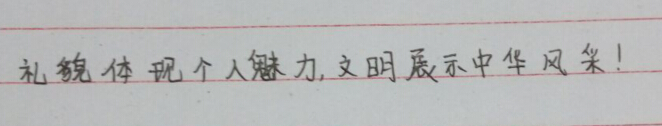 礼貌体现个人魅力,文明展示中华风采!